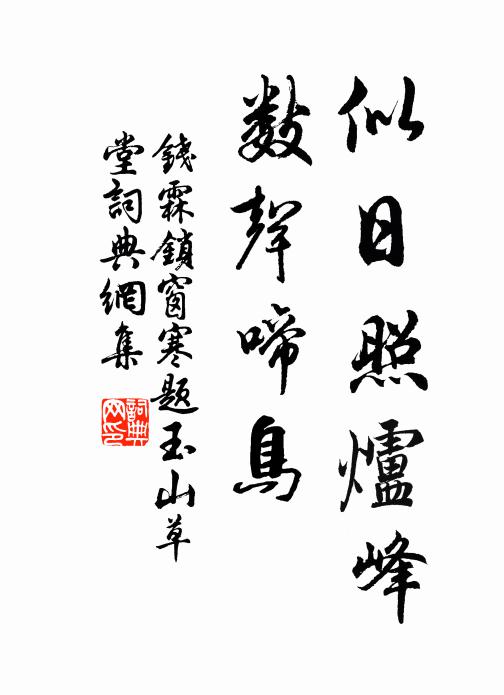 似日照爐峰
數聲啼鳥
錢霖鎖窗寒題玉山草
堂詞典網集
詞典
网印